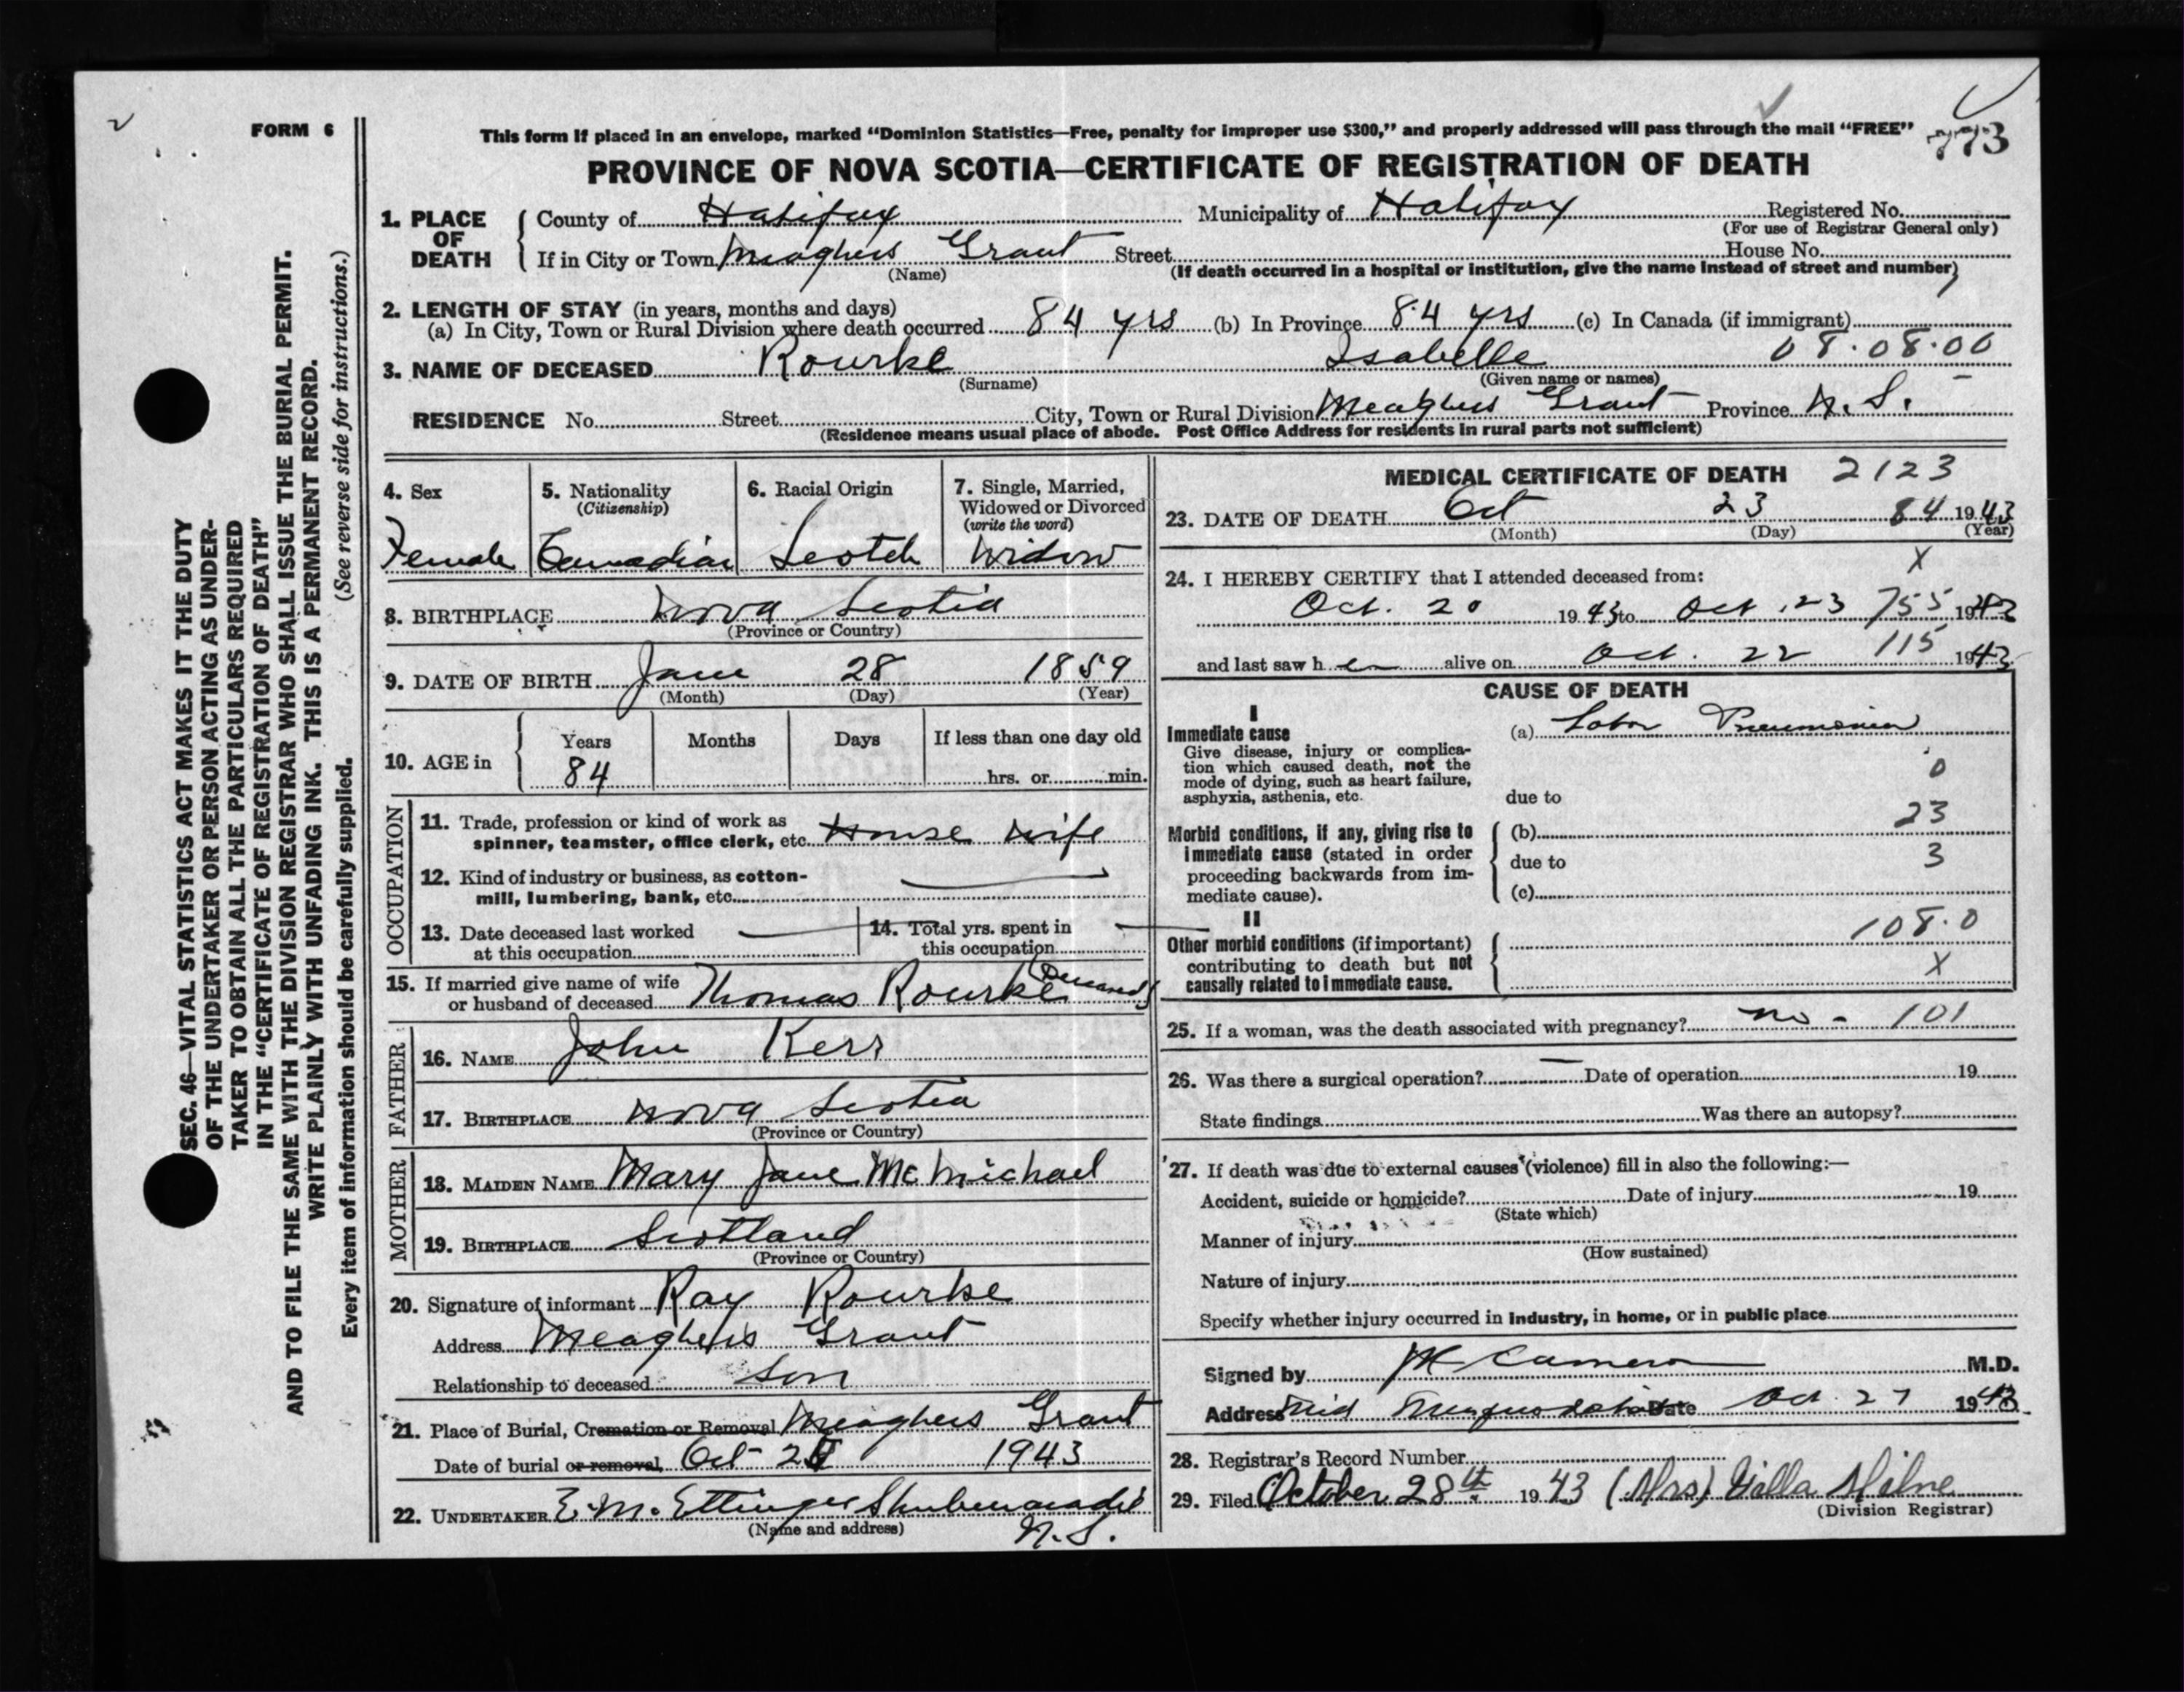 FORM 6
This form if placed in an envelope, marked "Dominion Statistics—Free, penalty for improper use $300," and properly addressed will pass through the mail "FREE"
773
PROVINCE OF NOVA SCOTIA—CERTIFICATE OF REGISTRATION OF DEATH
1. PLACE OF DEATH
County of Halifax Municipality of Halifax Registered No.
(For use of Registrar General only)
If in City or Town Meaghers Grant Street House No.
(Name) (If death occurred in a hospital or institution, give the name instead of street and number)
2. LENGTH OF STAY (in years, months and days)
(a) In City, Town or Rural Division where death occurred 84 yrs (b) In Province 84 yrs (c) In Canada (if immigrant)
08.08.00
3. NAME OF DECEASED Rourke Isabelle
(Surname) (Given name or names)
RESIDENCE No. Street City, Town or Rural Division Meaghers Grant Province N.S.
(Residence means usual place of abode. Post Office Address for residents in rural parts not sufficient)
4. Sex
Female
5. Nationality
(Citizenship)
Canadian
6. Racial Origin
Scotch
7. Single, Married,
Widowed or Divorced
(write the word)
Widow
8. BIRTHPLACE Nova Scotia
(Province or Country)
9. DATE OF BIRTH Jane 28 1859
(Month) (Day) (Year)
10. AGE in
Years Months Days If less than one day old
84 hrs. or min.
OCCUPATION
11. Trade, profession or kind of work as
spinner, teamster, office clerk, etc. House Wife
12. Kind of industry or business, as cotton-
mill, lumbering, bank, etc.
13. Date deceased last worked
at this occupation
14. Total yrs. spent in
this occupation
15. If married give name of wife
or husband of deceased Thomas Rourke (Deceased)
FATHER
16. NAME John Kerr
17. BIRTHPLACE Nova Scotia
(Province or Country)
MOTHER
18. MAIDEN NAME Mary Jane McMichael
19. BIRTHPLACE Scotland
(Province or Country)
20. Signature of informant Ray Rourke
Address Meaghers Grant
Relationship to deceased Son
21. Place of Burial, Cremation or Removal Meaghers Grant
Date of burial or removal Oct 1943
22. UNDERTAKER E.M. Ettinger Shubenacadie
(Name and address) N.S.
MEDICAL CERTIFICATE OF DEATH 2123
23. DATE OF DEATH Oct 23 84 1943
(Month) (Day) (Year)
X
24. I HEREBY CERTIFY that I attended deceased from:
Oct. 20 1943 to Oct. 23 755 1943
and last saw her alive on Oct. 22 115 1943
CAUSE OF DEATH
I
Immediate cause
Give disease, injury or complica-
tion which caused death, not the
mode of dying, such as heart failure,
asphyxia, asthenia, etc.
(a) Lobar Pneumonia
0
due to
23
Morbid conditions, if any, giving rise to
immediate cause (stated in order
proceeding backwards from im-
mediate cause).
(b)
due to 3
(c)
II
Other morbid conditions (if important)
contributing to death but not
causally related to immediate cause.
108.0
X
25. If a woman, was the death associated with pregnancy? no - 101
26. Was there a surgical operation? — Date of operation 19
State findings Was there an autopsy?
27. If death was due to external causes (violence) fill in also the following:—
Accident, suicide or homicide? Date of injury 19
(State which)
Manner of injury
(How sustained)
Nature of injury
Specify whether injury occurred in industry, in home, or in public place
Signed by Cameron M.D.
Address Mid Musquodoboit Date Oct 27 1943
28. Registrar's Record Number
29. Filed October 28th 1943 (Mrs) Villa Milne
(Division Registrar)
SEC. 46—VITAL STATISTICS ACT MAKES IT THE DUTY
OF THE UNDERTAKER OR PERSON ACTING AS UNDER-
TAKER TO OBTAIN ALL THE PARTICULARS REQUIRED
IN THE "CERTIFICATE OF REGISTRATION OF DEATH"
AND TO FILE THE SAME WITH THE DIVISION REGISTRAR WHO SHALL ISSUE THE BURIAL PERMIT.
WRITE PLAINLY WITH UNFADING INK. THIS IS A PERMANENT RECORD.
Every item of information should be carefully supplied. (See reverse side for instructions.)